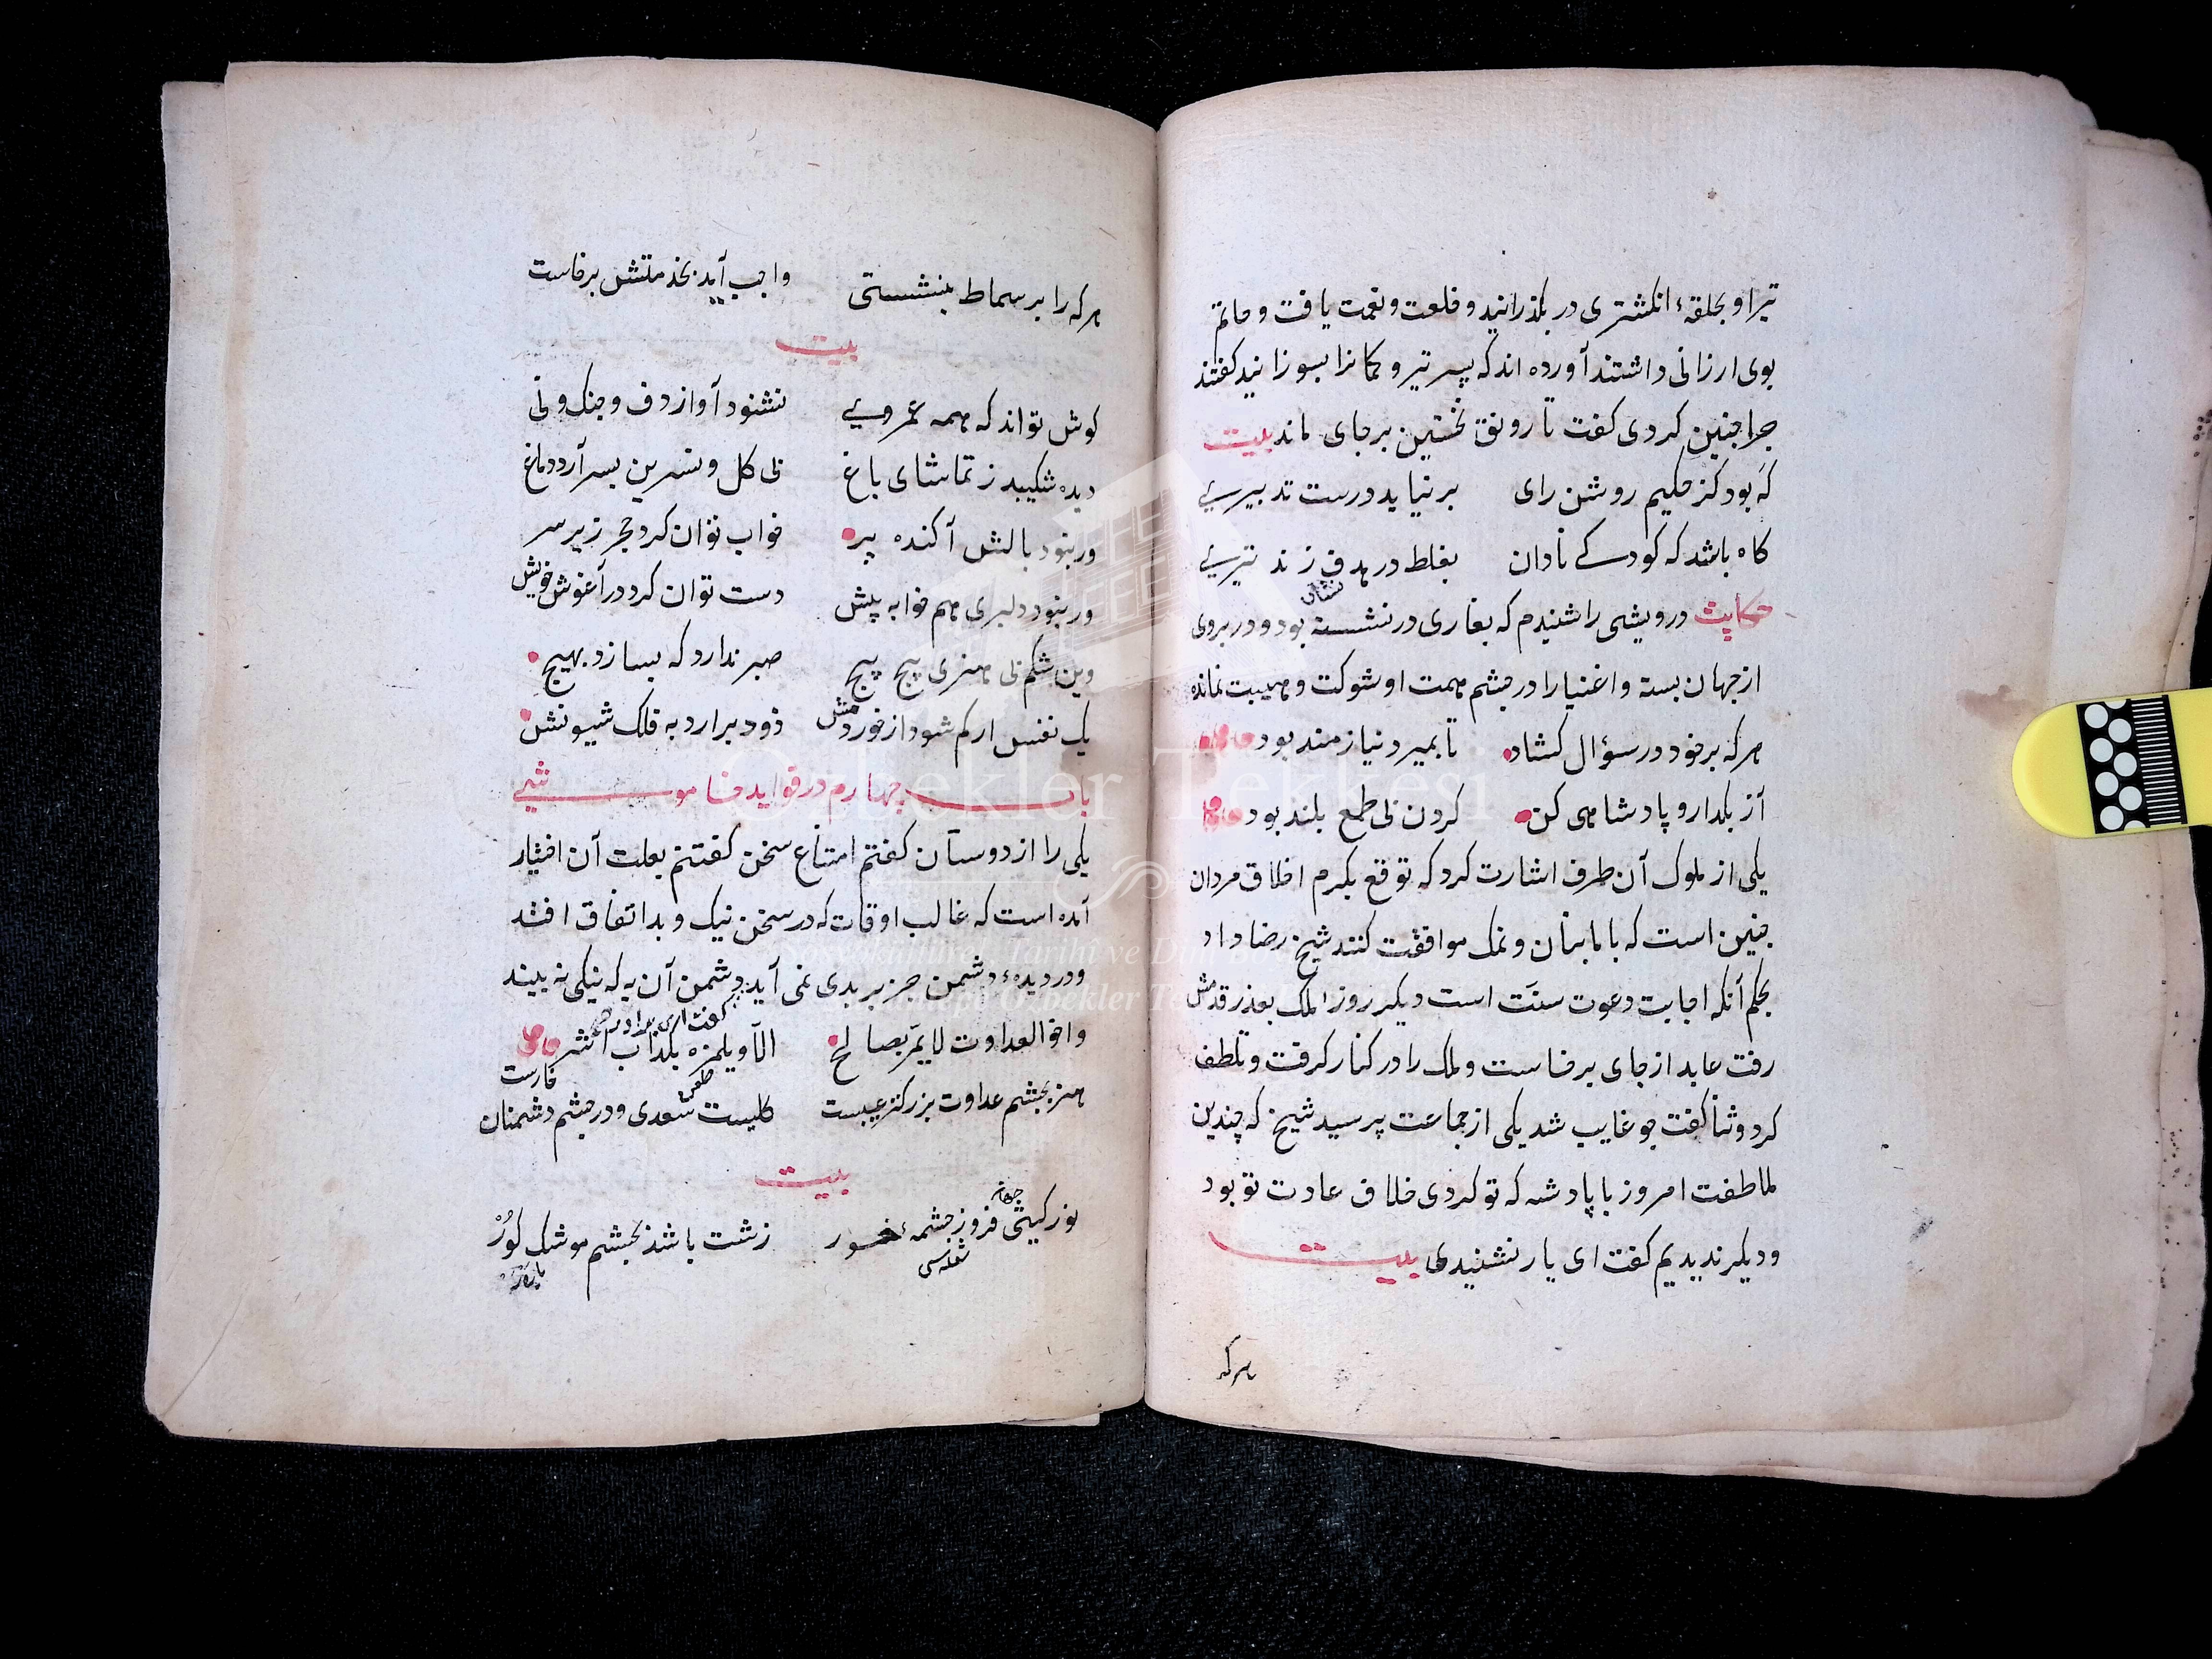 تیر او بحلقهٔ انکشتری در بکذرانید و خلعت و نعمت یافت و خاتم
بوی ارزانی داشتند آورده اند که پسر تیر و کمانرا بسوزانید کفتند
چرا چنین کردی کفت تا رونق نخستین برجای ماند بیت
که بود کز حکیم روشن رای برنیاید درست تدبیری
کاه باشد که کودکی نادان بغلط در هدف زند تیری
نشان
حکایت درویشی را شنیدم که بغاری در نشسته بود و در بروی
از جهان بسته و اغنیارا در چشم همت او شوکت و هیبت نمانده
هرکه بر خود در سؤال کشاد تا بمیرد نیازمند بود
آز بکذار و پادشاهی کن کردن بی طمع بلند بود
یکی از ملوک آن طرف اشارت کرد که توقع بکرم اخلاق مردان
چنین است که با ما بنان و نمک موافقت کنند شیخ رضا داد
بحکم آنکه اجابت دعوت سنت است دیکر روز ملک بعذر قدمش
رفت عابد از جای برخاست و ملک را در کنار کرفت و تلطف
کرد و ثنا کفت چو غایب شد یکی از جماعت پرسید شیخ که چندین
ملاطفت امروز با پادشه که تو کردی خلاف عادت تو بود
و دیکر ندیدیم کفت ای یار نشنیدی بیت
هرکه
هرکه را بر سماط بنشستی واجب آید بخدمتش برخاست
بیت
کوش تواند که همه عمر وی نشنود آواز دف و چنک و نی
دیده شکیبد ز تماشای باغ بی کل و نسرین بسر آرد دماغ
ور نبود بالش آکنده پر خواب توان کرد حجر زیر سر
ور نبود دلبری هم خوابه پیش دست توان کرد در آغوش خویش
وین شکم بی هنری پیچ پیچ صبر ندارد که بسازد بهیچ
یک نفس ار کم شود از خوردنش زود برارد به فلک شیونش
باب چهارم در فواید خاموشی
یکی را از دوستان کفتم امتناع سخن کفتنم بعلت آن اختیار
آمده است که غالب اوقات که در سخن نیک و بد اتفاق افتد
و در دیدهٔ دشمن جز بر بدی نمی آید دشمن آن به که نیکی نه بیند
کفت ای برادر
واخو العداوت لا یمر بصالح الا و یلمزه بکذاب اشر
هنر بچشم عداوت بزرکتر عیبست کلیست سعدی و در چشم دشمنان خارست
بیت
نور کیتی فروز چشمهٔ خور زشت باشد بچشم موشک کور
Özbekler Tekkesi